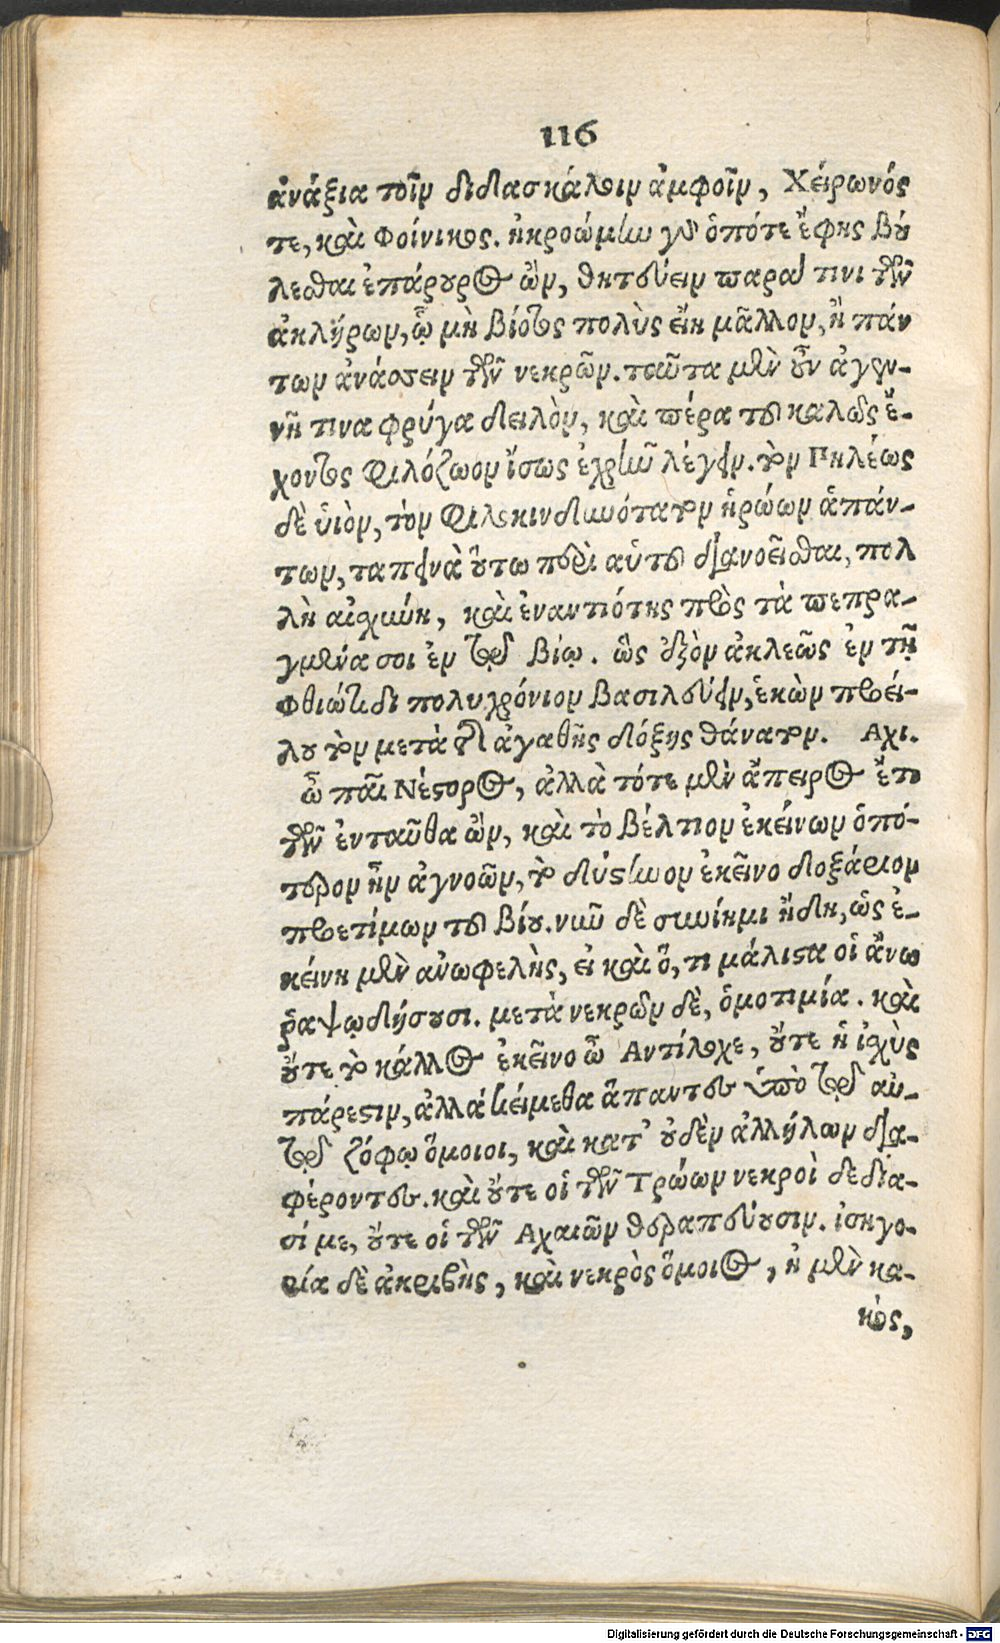 116
ἀνάξια τοῖν διδασκάλοιν ἀμφοῖν, Χείρωνός
τε, καὶ Φοίνικος. ἠκροώμην γὰρ ὁπότε ἔφης βού
λεσθαι ἐπάρουρος ὢν, θητεύειν παρά τινι τῶν
ἀκλήρων, ᾧ μὴ βίοτος πολὺς εἴη μᾶλλον, ἢ πάν
των ἀνάσσειν τῶν νεκρῶν. ταῦτα μὲν οὖν ἀγεν-
νῆ τινα φρύγα δειλὸν, καὶ πέρα τοῦ καλῶς ἔ-
χοντος φιλόζωον ἴσως ἐχρῆν λέγειν. τὸν Πηλέως
δὲ ὑιὸν, τὸν φιλοκινδυνότατον ἡρώων ἁπάν-
των, ταπεινὰ οὕτω περὶ αὑτοῦ διανοεῖσθαι, πολ
λὴ αἰσχύνη, καὶ ἐναντιότης πρὸς τὰ πεπρα-
γμένα σοι ἐν τῷ βίῳ. ὃς ἐξὸν ἀκλεῶς ἐν τῇ
Φθιώτιδι πολυχρόνιον βασιλεύειν, ἑκὼν προεί-
λου τὸν μετὰ τῆς ἀγαθῆς δόξης θάνατον. Αχι.
ὦ παῖ Νέστορος, ἀλλὰ τότε μὲν ἄπειρος ἔτι
τῶν ἐνταῦθα ὢν, καὶ τὸ βέλτιον ἐκείνων ὁπό-
τερον ἦν ἀγνοῶν, τὸ δύστηνον ἐκεῖνο δοξάριον
προετίμων τοῦ βίου. νῦν δὲ συνίημι ἤδη, ὡς ἐ-
κείνη μὲν ἀνωφελὴς, εἰ καὶ ὅ, τι μάλιστα οἱ ἄνω
ῥαψῳδήσουσι. μετὰ νεκρῶν δὲ, ὁμοτιμία. καὶ
οὔτε τὸ κάλλος ἐκεῖνο ὦ Αντίλοχε, οὔτε ἡ ἰσχὺς
πάρεστιν, ἀλλὰ κείμεθα ἅπαντες ὑπὸ τῷ αὐ-
τῷ ζόφῳ ὅμοιοι, καὶ κατ' οὐδὲν ἀλλήλων δια-
φέροντες. καὶ οὔτε οἱ τῶν Τρώων νεκροὶ δεδία-
σί με, οὔτε οἱ τῶν Αχαιῶν θεραπεύουσιν. ἰσηγο-
ρία δὲ ἀκριβὴς, καὶ νεκρὸς ὅμοιος, ἠ μὲν κα-
κὸς,
Digitalisierung gefördert durch die Deutsche Forschungsgemeinschaft - DFG